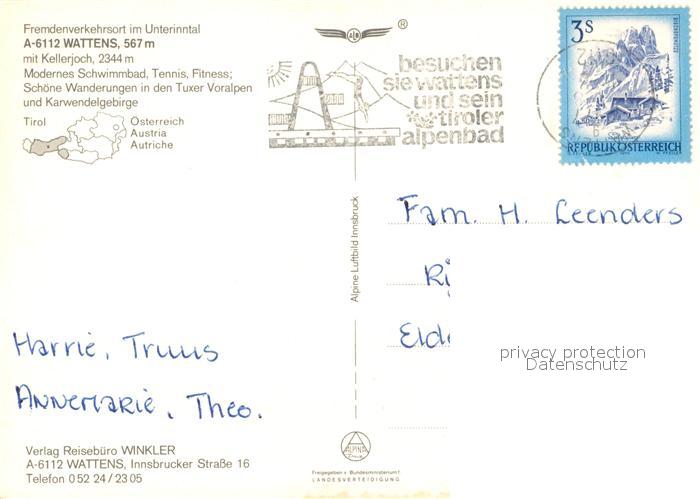 Fremdenverkehrsort im Unterinntal
A-6112 WATTENS, 567 m
mit Kellerjoch, 2344 m
Modernes Schwimmbad, Tennis, Fitness;
Schöne Wanderungen in den Tuxer Voralpen
und Karwendelgebirge
Tirol
Österreich
Austria
Autriche
®
besuchen
sie wattens
und sein
tiroler
alpenbad
3S
REPUBLIK ÖSTERREICH
Alpine Luftbild Innsbruck
Fam. H. Leenders
Ri
Elde
privacy protection
Datenschutz
Harrie, Truus
Annemarie, Theo.
Verlag Reisebüro WINKLER
A-6112 WATTENS, Innsbrucker Straße 16
Telefon 0 52 24 / 23 05
ALPINE
Freigegeben v. Bundesministerium f.
LANDESVERTEIDIGUNG